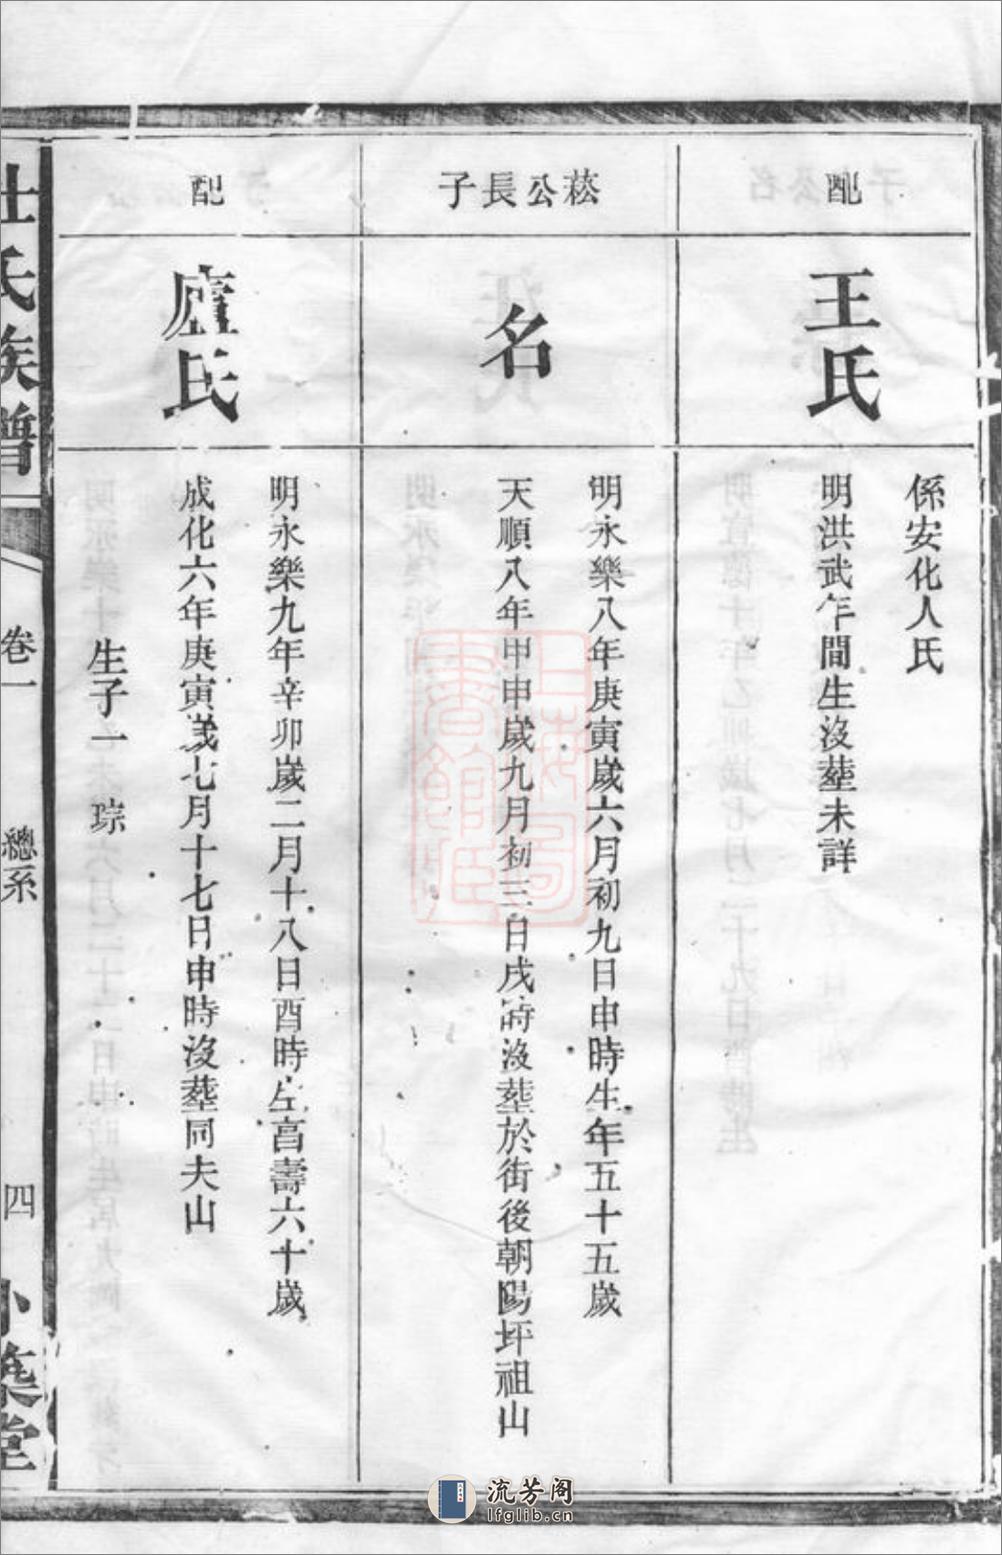 配
王氏
係安化人氏
明洪武年間生沒塟未詳
菘公長子
名
明永樂八年庚寅歲六月初九日申時生年五十五歲
天順八年甲申歲九月初三日戌時沒塟於街後朝陽坪祖山
配
盧氏
明永樂九年辛卯歲二月十八日酉時生享壽六十歲
成化六年庚寅歲七月十七日申時沒塟同夫山
生子一 琮
杜氏族譜
卷一
總系
四
流芳阁
lfglib.cn